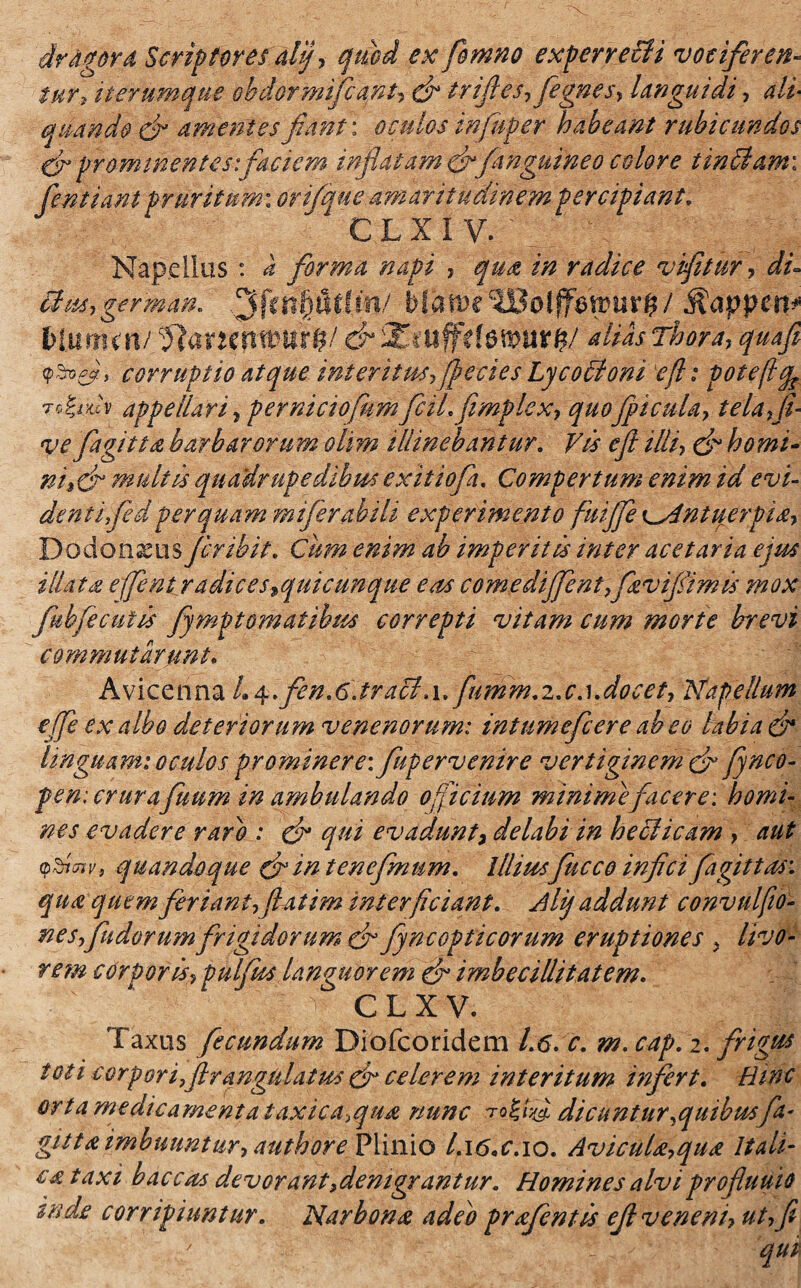 dragora Scriptores alij, quòd ex somno experrecti vociferen-
tur, iterumque obdormiscant, & tristes, segnes, languidi, ali-
quando & amentes fiant: oculos insuper habeant rubicundos
& prominentes: faciem inflatam & sanguineo colore tinctam:
sentiant pruritum: orisque amaritudinem percipiant.
CLXIV.
Napellus: à forma napi, quæ in radice visitur, di-
ctus, german. blawe Wolffswurtz / Kappen-
blumen / Narrenwurtz / & Teuffelswurtz / aliàs Thora, quasi
corruptio atque interitus, species Lycoctoni est: potestq;
τοξικὸν appellari, perniciosum scil. simplex, quo spicula, tela, si-
ve sagittæ barbarorum olim illinebantur. Vis est illi, & homi-
ni, & multis quadrupedibus exitiosa. Compertum enim id evi-
denti, sed perquam miserabili experimento fuisse Antuerpiæ,
Dodonæus scribit. Cùm enim ab imperitis inter acetaria ejus
illatæ essent radices, quicunque eas comedissent, sævissimis mox
subsecutis symptomatibus correpti vitam cum morte brevi
commutârunt.
Avicenna l. 4. fen. 6. tract. 1. summ. 2. c. 1. docet, Napellum
esse ex albo deteriorum venenorum: intumescere ab eo labia &
linguam: oculos prominere: supervenire vertiginem & synco-
pen: crura suum in ambulando officium minimè facere: homi-
nes evadere rarò: & qui evadunt, delabi in hecticam, aut
quandoque & in tenesmum. Illius succo infici sagittas:
quæ quem feriant, statim interficiant. Alij addunt convulsio-
nes, sudorum frigidorum & syncopticorum eruptiones, livo-
rem corporis, pulsus languorem & imbecillitatem.
CLXV.
Taxus secundum Dioscoridem l. 6. c. m. cap. 2. frigus
toti corpori, strangulatus & celerem interitum infert. Hinc
orta medicamenta taxica, quæ nunc τοξικὰ dicuntur, quibus sa-
gittæ imbuuntur, authore Plinio l. 16. c. 10. Aviculæ, quæ Itali-
cæ taxi baccas devorant, denigrantur. Homines alvi profluuio
inde corripiuntur. Narbonæ adeò præsentis est veneni, ut, si
qui